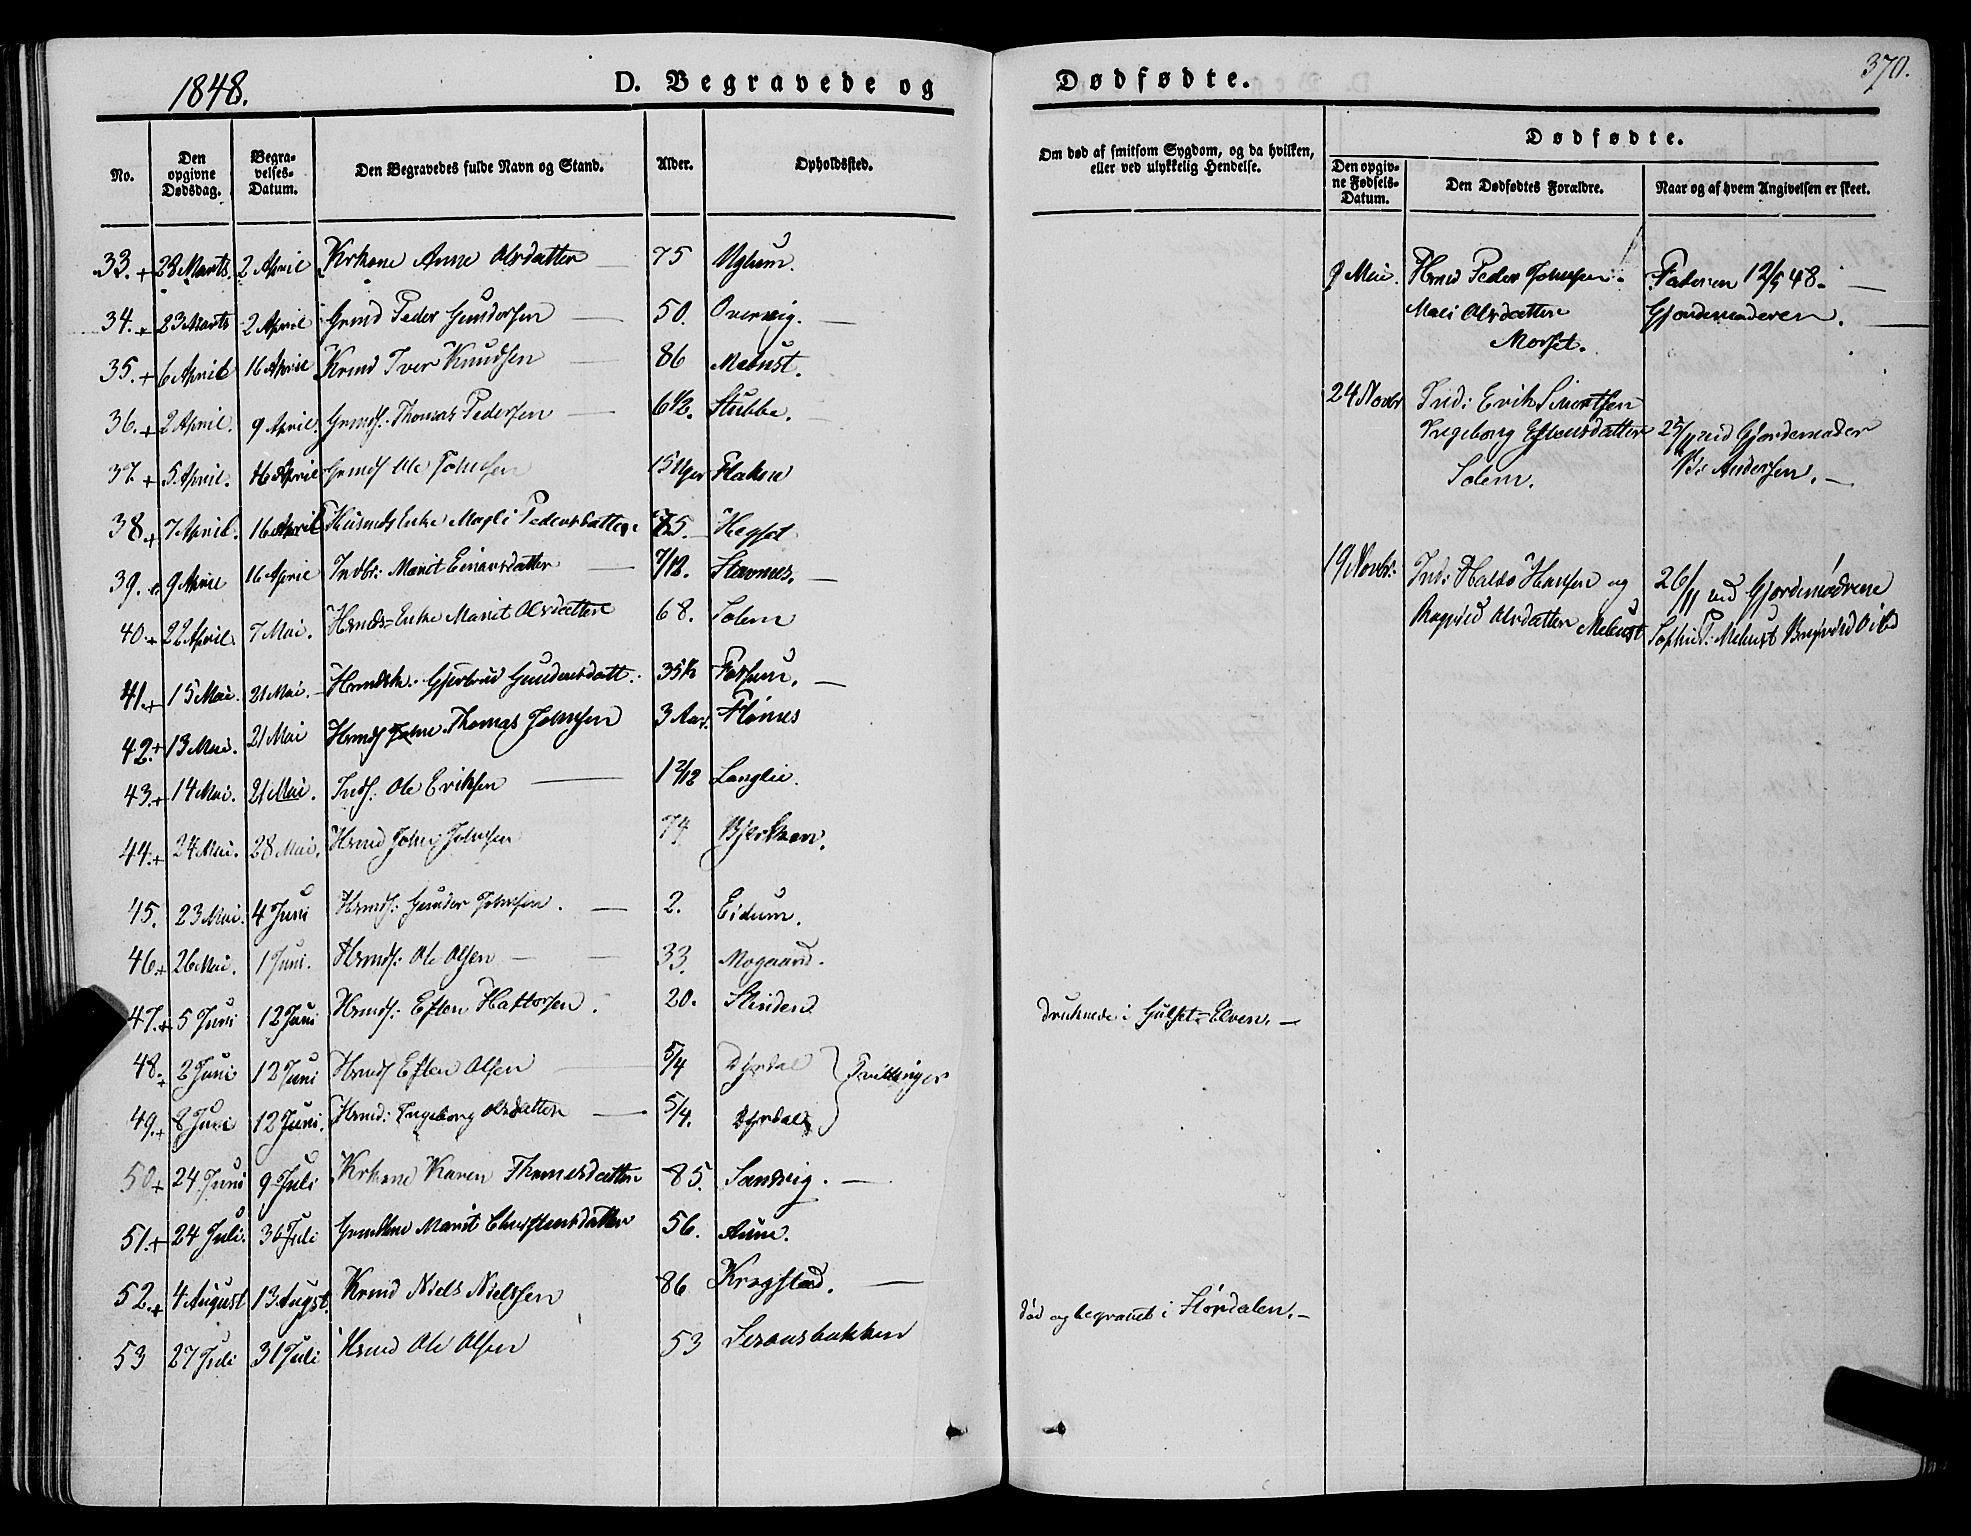 1848.
D. Begravede og
Dødfødte.
370.
No.
Den opgivne Dødsdag.
Begravelses-Datum.
Den Begravedes fulde Navn og Stand.
Alder.
Opholdssted.
Om død af smitsom Sygdom, og da hvilken, eller ved ulykkelig Hendelse.
Dødfødte.
Den opgivne Fødsels-Datum.
Den Dødfødtes Forældre.
Naar og af hvem Angivelsen er skeet.
33. + 23 Marts 2 April Krkone Anne Olsdatter 75 Uglum.
34. + 23 Marts 2 April Grmd Peder Gundersen 50. Overvig.
35. + 6 April 16 April Krmd Iver Knudsen 86 Mebust.
36. + 2 April. 9 April. Grmds: Thomas Pedersen 6 1/2. Stubbe.
37. + 5 April. 16 April Grmds Ole Johnsen 15 Uger Flaken
38. + 7 April. 16 April Husmds Enke Magli Pedersdatter 75. Hegset
39. + 9 April 16 April Indbs: Marit Einarsdatter 7/12. Stavnes.
40. + 22 April. 7 Mai. Hmds-Enke Marit Olsdatter 68. Solem
41. + 15 Mai. 21 Mai. Hmdsk: Gjertrud Gundersdatt: 35 Fossum.
42. + 13 Mai. 21 Mai Hmds Thomas Johnsen 3 Aar. Flønes
43. + 14 Mai. 21 Mai. Inds: Ole Eriksen 1 2/12 Langlie.
44. + 24 Mai. 28 Mai. Hmd John Johnsen 74 Bjerkaan.
45. 23 Mai. 4 Juni Hmds: Gunder Johnsen. 2. Eidum.
46. + 26 Mai. 1 Juni. Hmds: Ole Olsen 33. Mogaard.
47. + 5 Juni 12 Juni Hmds: Esten Hattorsen. 20. Slinden druknede i Gulset-Elven.
48. + 2 Juni 12 Juni Hmds Esten Olsen 5/4 Dyrdal Tvillinger
49. + 8 Juni 12 Juni. Hmd: Ingeborg Olsdatter 5/4. Dyrdal
50 + 24 Juni 9 Juli Krkone Karen Thomesdatter 85. Sandvig.
51. + 24 Juli. 30 Juli Grmdkne Marit Christensdatter 56. Aune.
52. + 4 August 13 Augst. Krmd Niels Nielssen 86 Krogstad.
53 27 Juli 31 Juli Hsmd Ole Olsen 53 død og begravet i Størdalen.
9 Mai. Hmd Peder Johnsen Faderen 12/5 48.
Mali Olsdatter Gjordemoderen.
Morset.
24 Novbr Ind: Erik Sivertsen
Ingeborg Estensdatter 25/11 ved Gjordemoder
Solem. Br: Andersen.
19 Novbr: Ind: Haldo Hansen og 26/11 ved Gjordemødrene
Ragnild Olsdatter Mebust Sophie P: Mebust